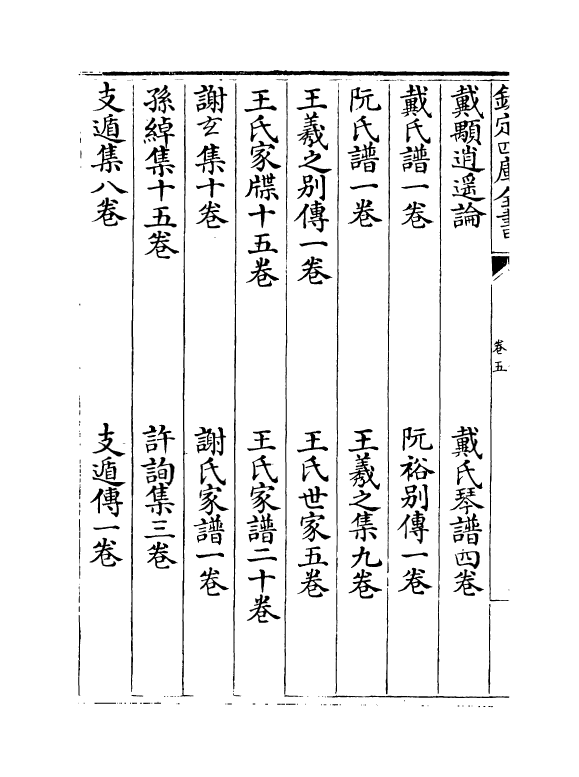 欽定四庫全書
卷五
戴顒逍遥論　戴氏琴譜四卷
戴氏譜一卷　阮裕别傳一卷
阮氏譜一卷　王羲之集九卷
王羲之别傳一卷　王氏世家五卷
王氏家牒十五卷　王氏家譜二十卷
謝玄集十卷　謝氏家譜一卷
孫綽集十五卷　許詢集三卷
支遁集八卷　支遁傳一卷